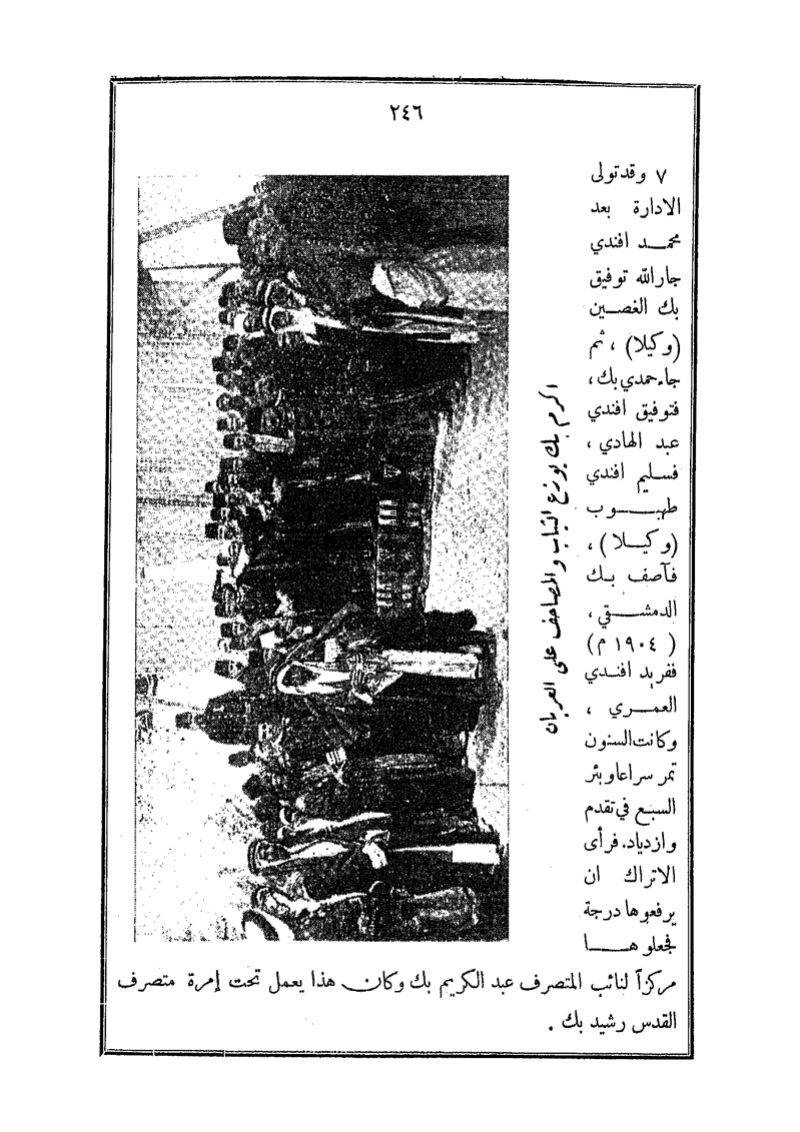 ٢٤٦
٧ وقد تولى
الادارة بعد
محمد افندي
جارالله توفيق
بك الغصين
(وكيلا) ، ثم
جاء حمدي بك ،
فتوفيق افندي
عبد الهادي ،
فسليم افندي
طهبوب
(وكيلا) ،
فآصف بك
الدمشقي ،
(١٩٠٤ م)
ففريد افندي
العمري ،
وكانت السنون
تمر سراعا وبئر
السبع في تقدم
وازدياد. فرأى
الاتراك ان
يرفعوها درجة
فجعلوها
مركزاً لنائب المتصرف عبد الكريم بك وكان هذا يعمل تحت إمرة متصرف
القدس رشيد بك .
اكرم بك يوزع الثياب والمصاحف على العربان